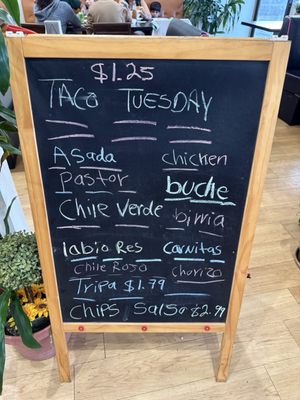 $1.25
TACO TUESDAY
Asada chicken
Pastor buche
Chile Verde birria
labio Res Carnitas
Chile Rojo Chorizo
Tripa $1.79
Chips Salsa $2.99